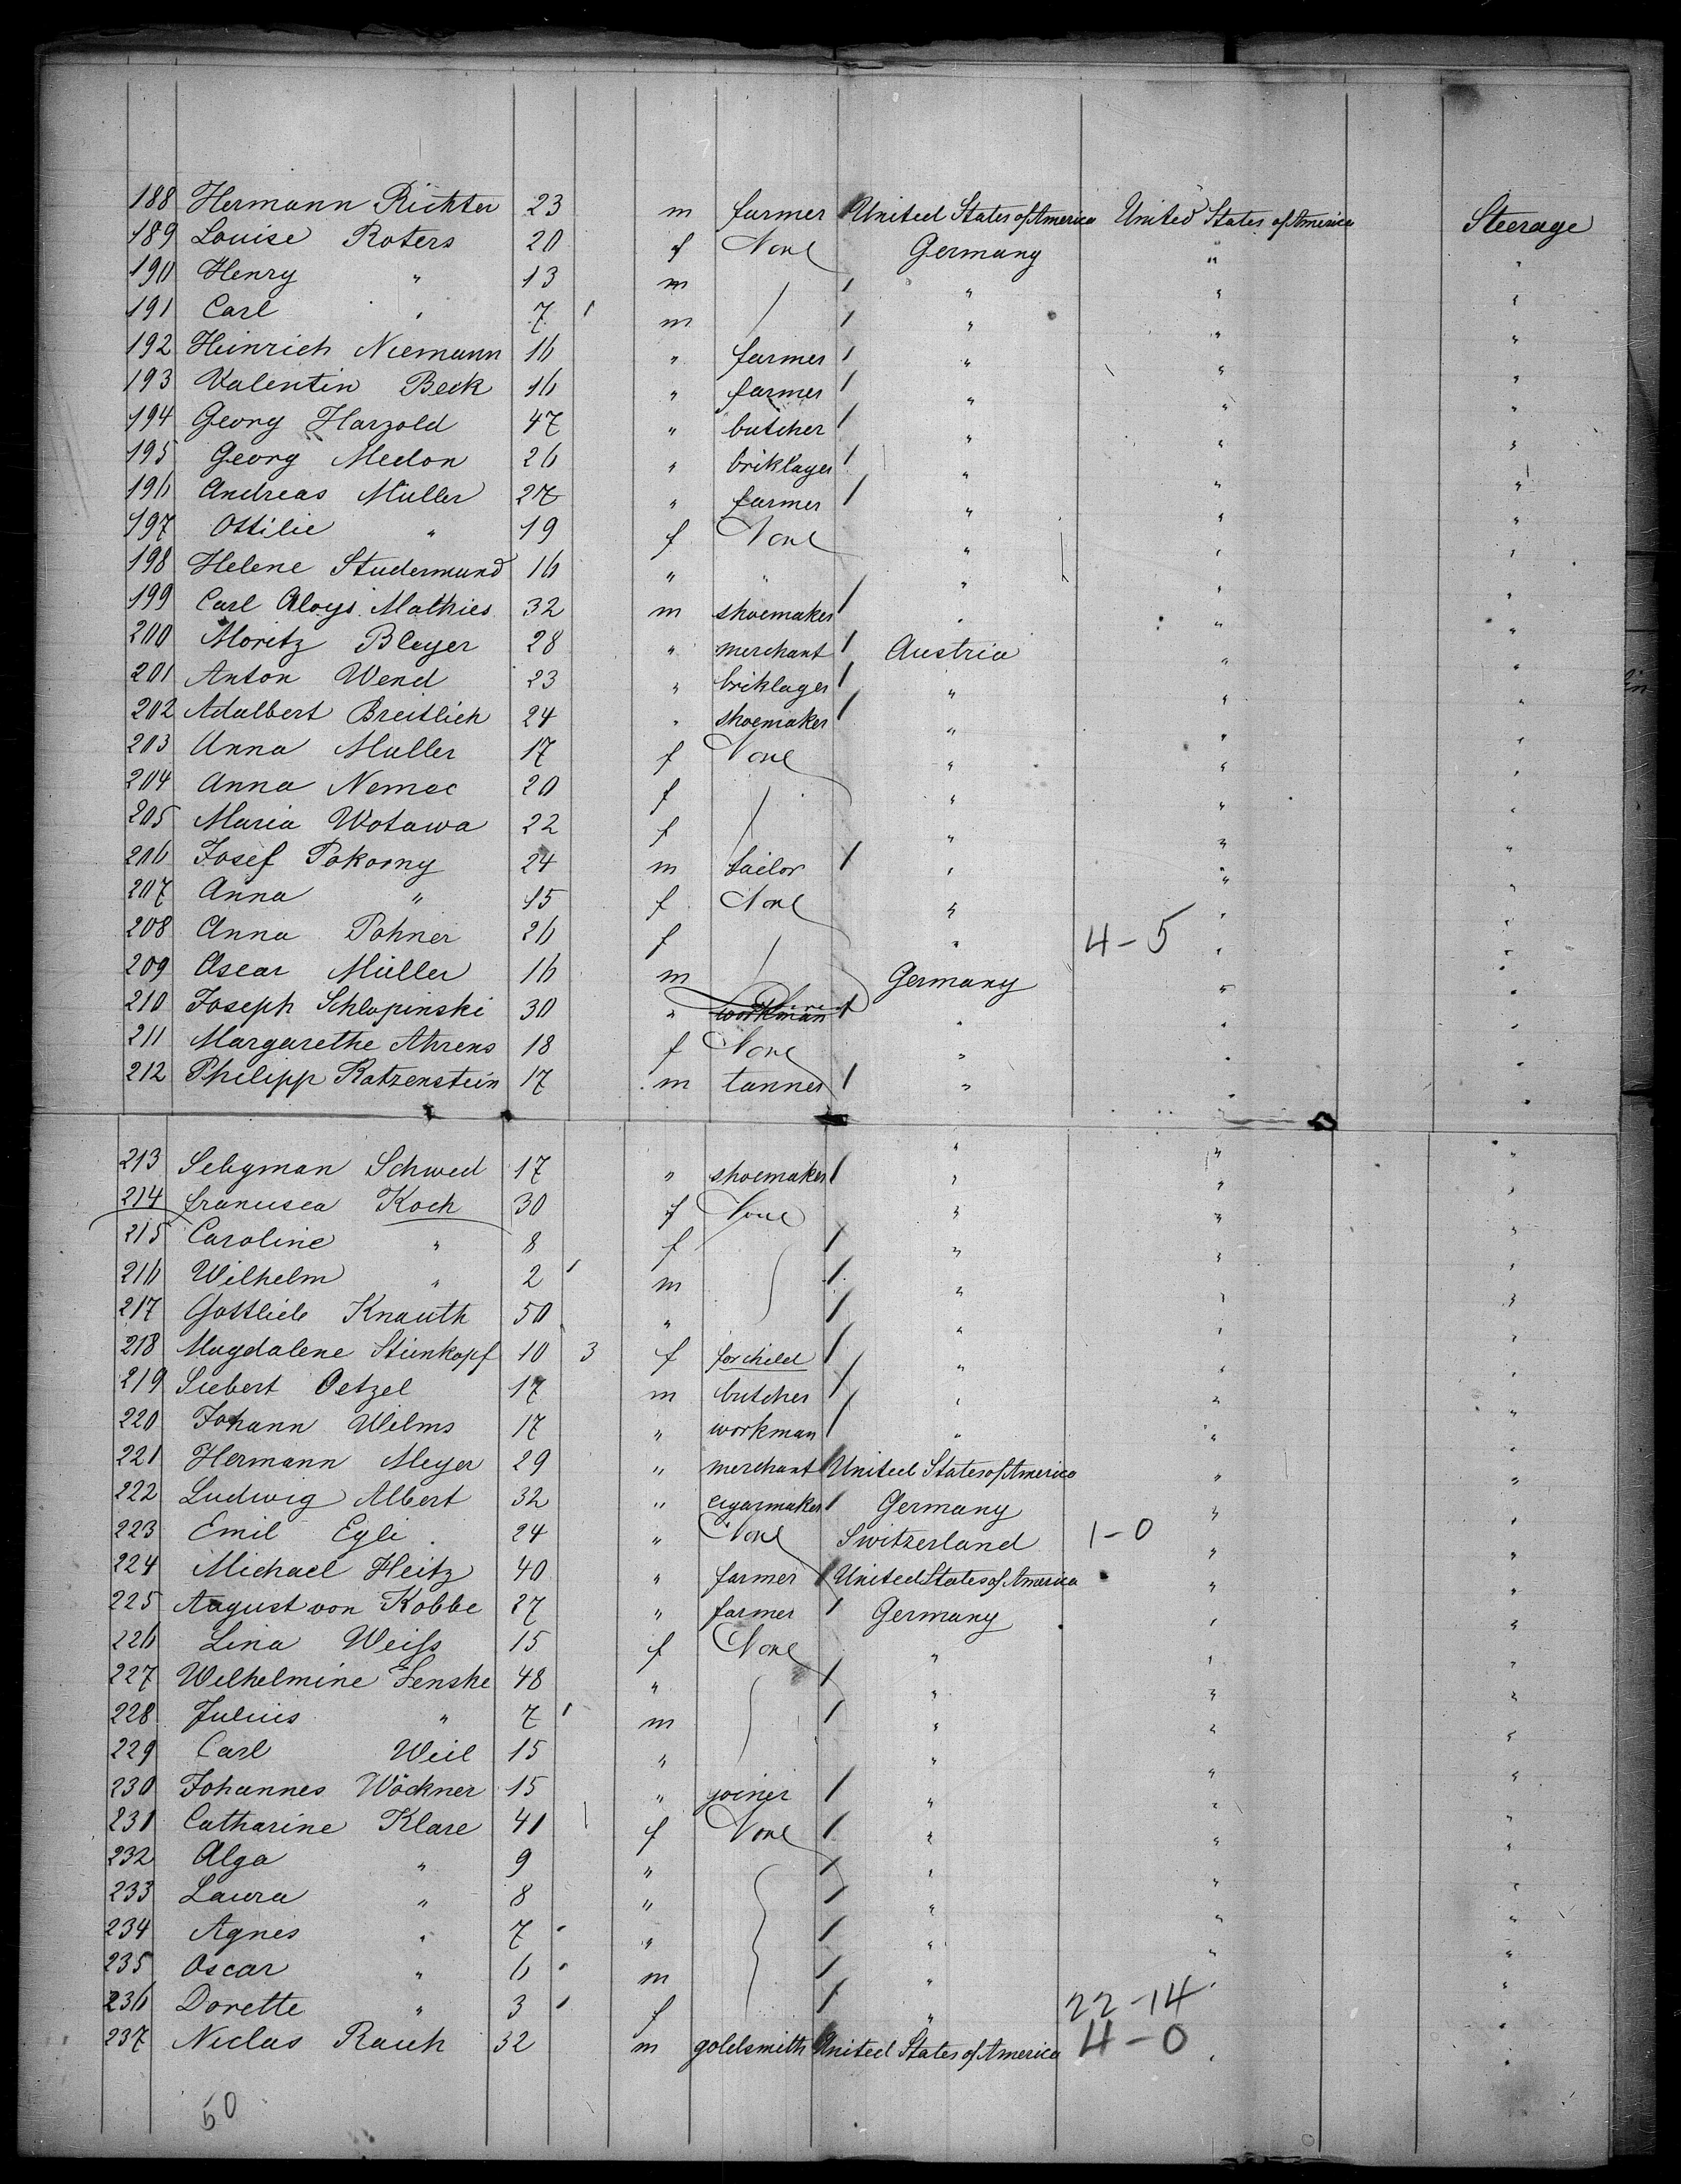 188 Hermann Richter 23 m farmer United States of America United States of America Steerage
189 Louise Roters 20 f None Germany " "
190 Henry " 13 m " " "
191 Carl " 7 m " " "
192 Heinrich Niemann 16 " farmer " " "
193 Valentin Beck 16 " farmer " " "
194 Georg Harzold 47 " butcher " " "
195 Georg Medon 26 " briklayer " " "
196 Andreas Müller 27 " farmer " " "
197 Ottilie " 19 f None " " "
198 Helene Studermund 16 " " " " "
199 Carl Aloys Mathies 32 m shoemaker " " "
200 Moritz Bleyer 28 " merchant Austria " "
201 Anton Wend 23 " briklayer " " "
202 Adalbert Breitlich 24 " shoemaker " " "
203 Anna Muller 17 f None " " "
204 Anna Nemec 20 f " " "
205 Maria Wotawa 22 f " " "
206 Josef Pokorny 24 m tailor " " "
207 Anna " 15 f None " " "
208 Anna Pohner 26 f " 4-5 " "
209 Oscar Müller 16 m Germany " "
210 Joseph Schlapinski 30 " workman " " "
211 Margarethe Ahrens 18 f None " " "
212 Philipp Katzenstein 17 m tanner " " "
213 Seligman Schwed 17 " shoemaker " " "
214 francisca Koch 30 f None " " "
215 Caroline " 8 f " " "
216 Wilhelm " 2 m " " "
217 Gottlieb Knauth 50 " " " "
218 Magdalene Steinkopf 10 3 f for child " " "
219 Siebert Oetzel 17 m butcher " " "
220 Johann Wilms 17 " workman " " "
221 Hermann Meyer 29 " merchant United States of America " "
222 Ludwig Albert 32 " cigarmaker Germany " "
223 Emil Egli 24 " None Switzerland 1-0 " "
224 Michael Heitz 40 " farmer United States of America " "
225 August von Kobbe 27 " farmer Germany " "
226 Lina Weiſs 15 f None " " "
227 Wilhelmine Fenske 48 " " " "
228 Julius " 7 m " " "
229 Carl Weil 15 " " " "
230 Johannes Wöckner 15 " joiner " " "
231 Catharine Klare 41 f None " " "
232 Alga " 9 " " " "
233 Laura " 8 " " " "
234 Agnes " 7 " " " "
235 Oscar " 6 m " " "
236 Dorette " 3 f " 22-14 " "
237 Niclas Rauh 32 m goldsmith United States of America 4-0 " "
50